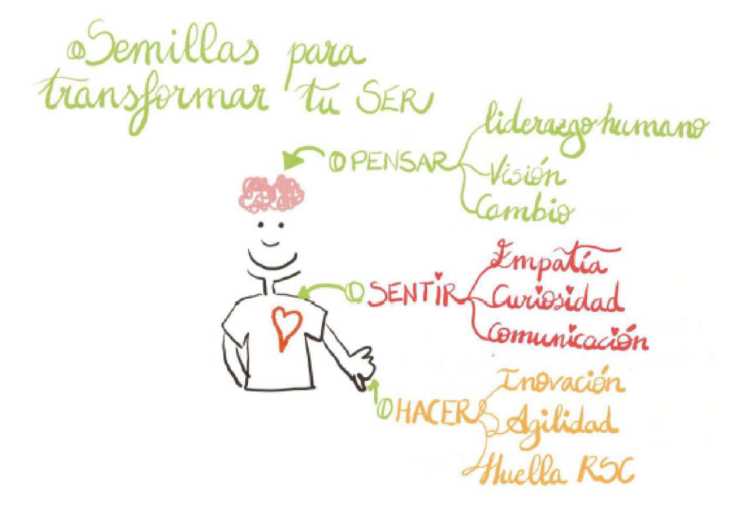 Semillas para
transformar tu SER
PENSAR
liderazgo humano
Visión
Cambio
SENTIR
Empatía
Curiosidad
Comunicación
HACER
Inovación
Agilidad
Huella RSC